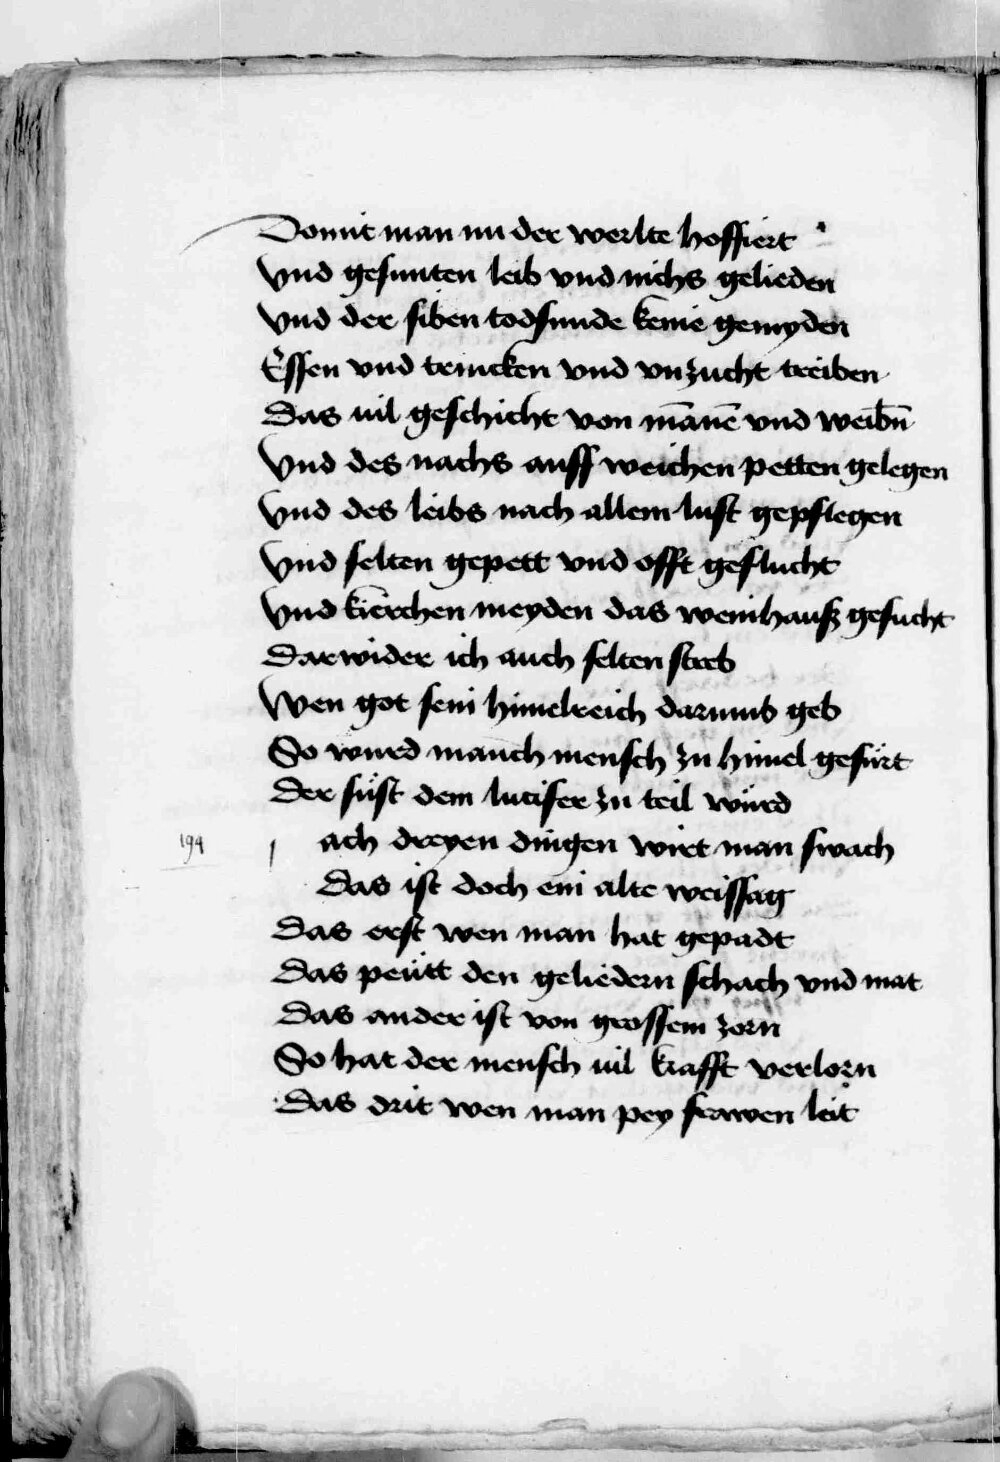 Domit man nu der werlte hoffiert
Vnd gesunten leib vnd nichs gelieden
Vnd der siben todsunde keine gemyden
Essen vnd trincken vnd vnzucht treiben
Das uil geschicht von māneˉ vnd weibn̄
Vnd des nachs auff weichen petten gelegen
Vnd des leibs nach allem lust gepflegen
Vnd selten gepett vnd offt geflucht
Vnd kirchen meyden das weinhausz gesucht
Darwider ich auch selten streb
Wen got sein himelreich darumb geb
So wurd manch mensch zu himel gefürt
Der süst dem lucifer zu teil würd
194
ach dreyen dingen wirt man swach
Das ist doch ein alte weissag
Das erst wen man hat gepadt
Das peütt den geliedern schach vnd mat
Das ander ist von grossem zorn
So hat der mensch uil krafft verlorn
Das drit wen man pey frawen leit